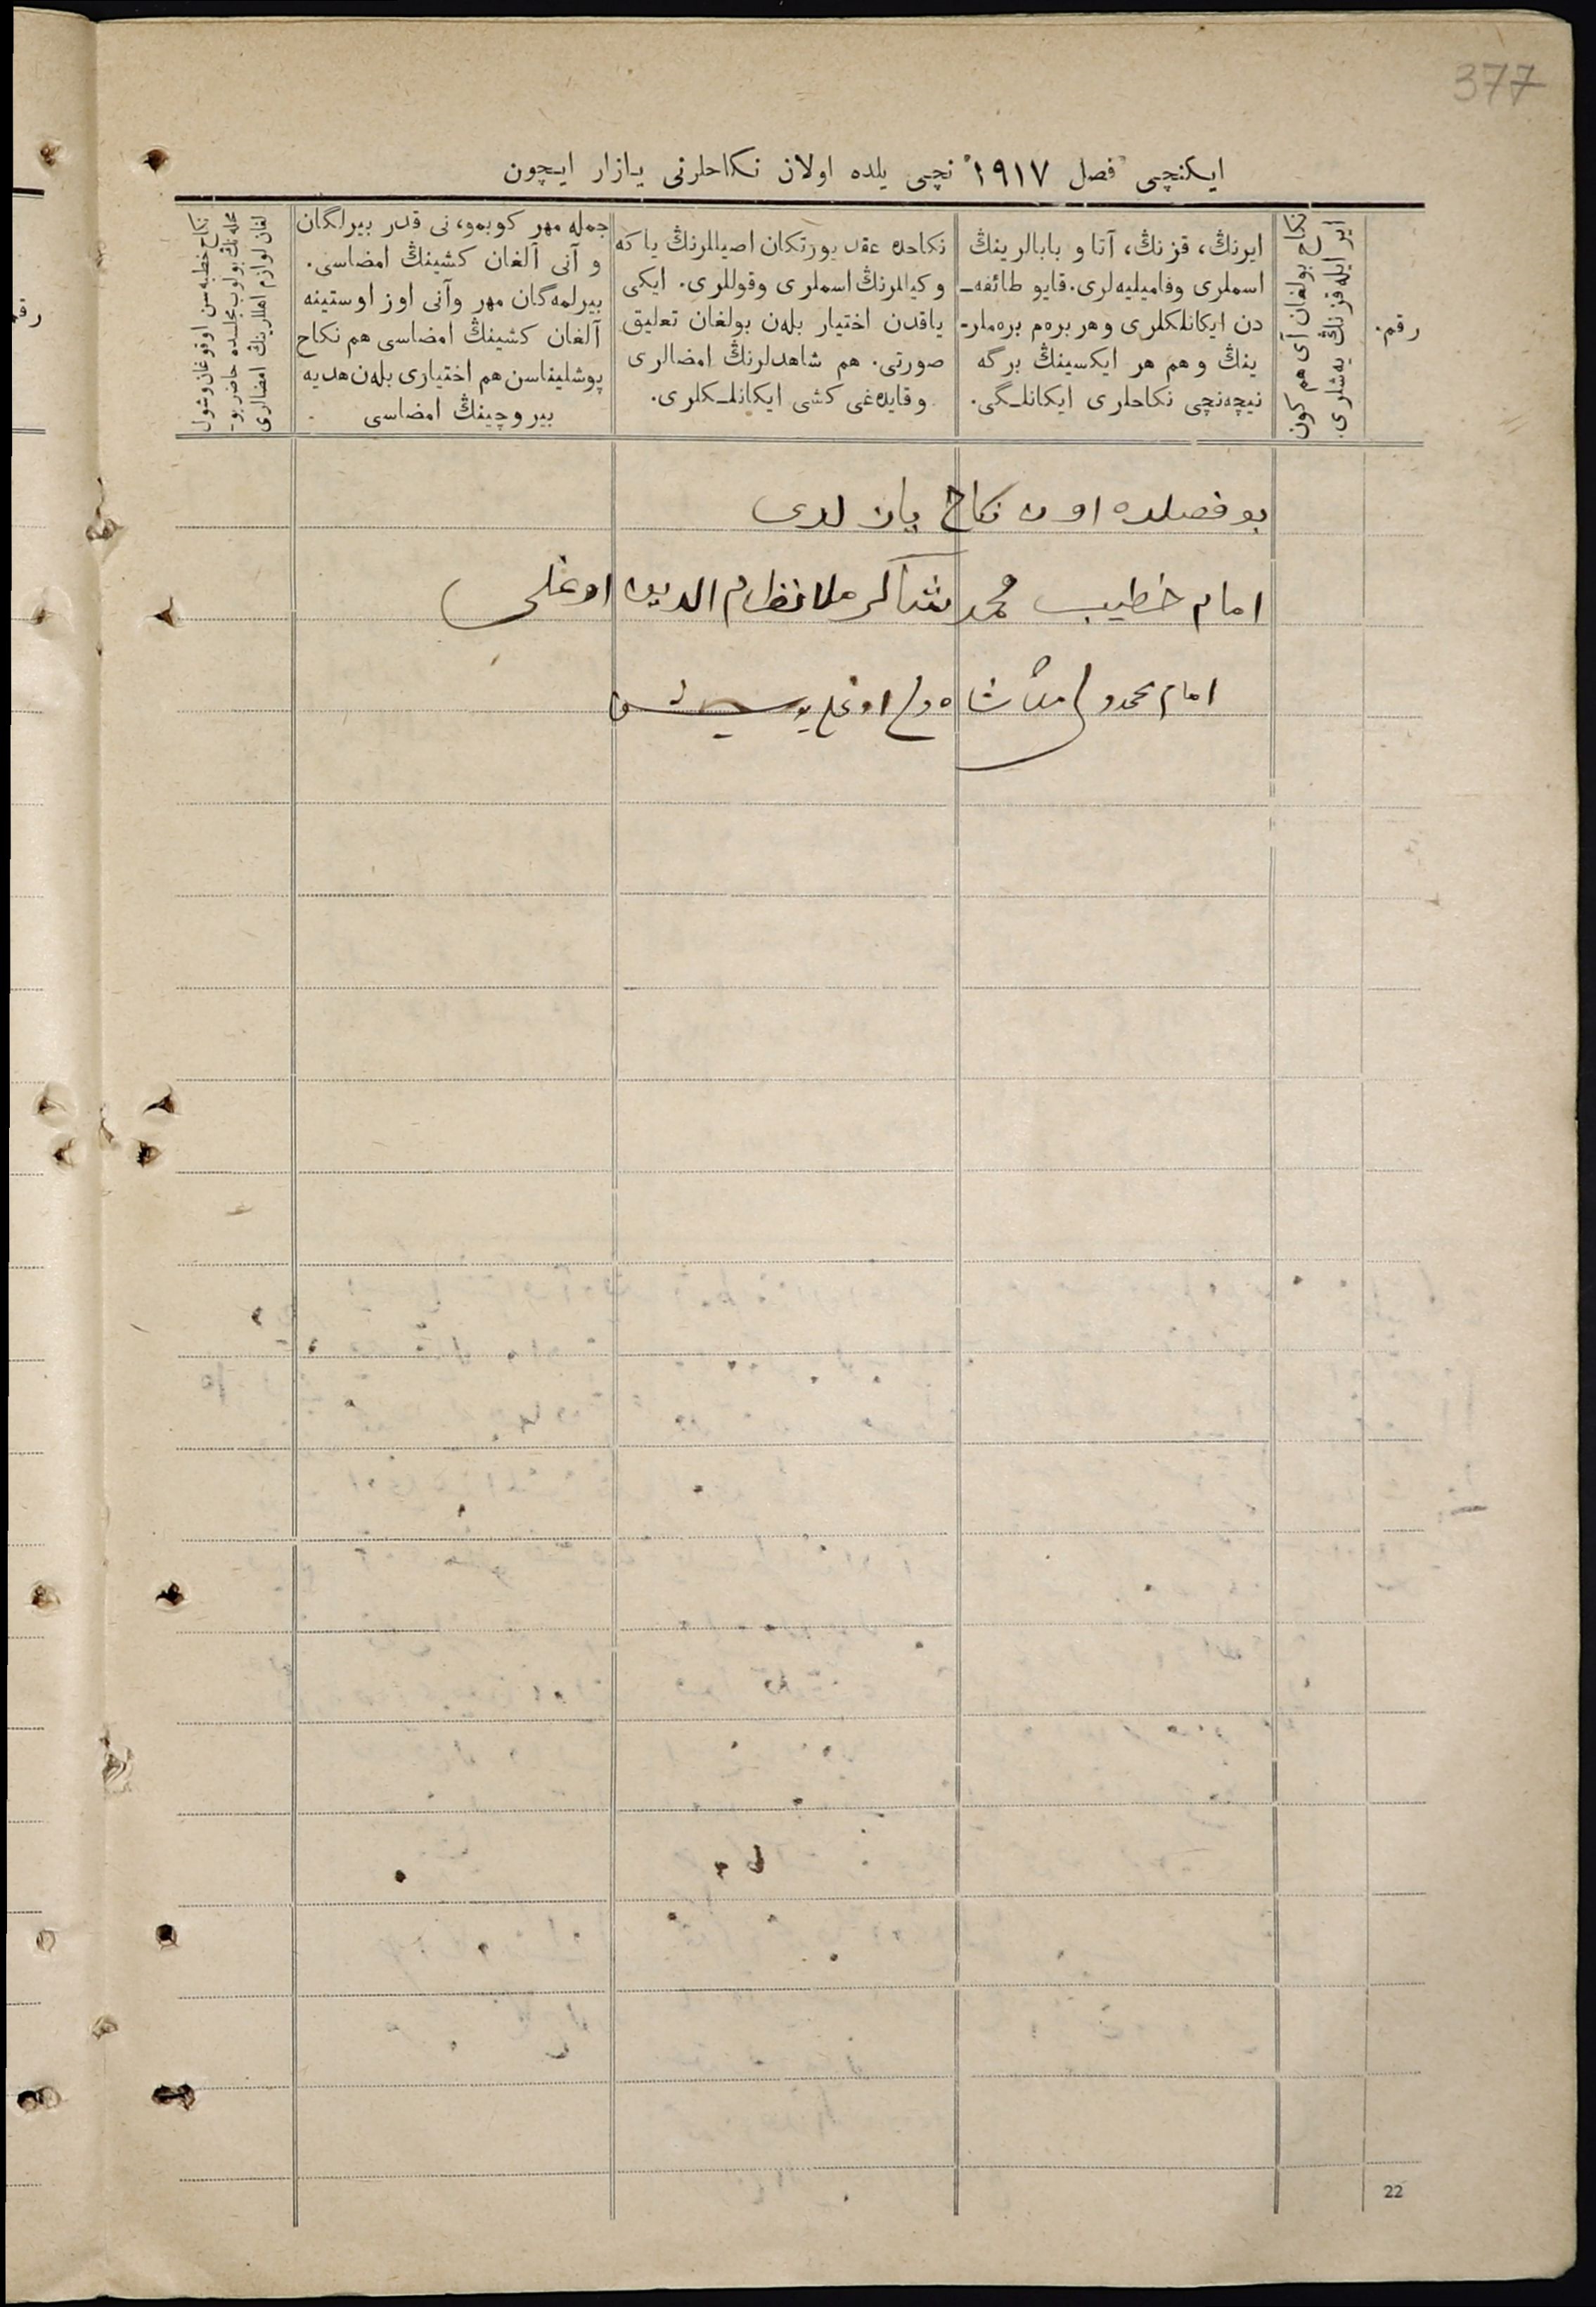 377
ایکنچی فصل ۱۹۱۷ نچی یلده اولان نکاحلرنی یازار ایچون
رقم.
نکاح بولغان آی هم کون
ایر ایله قزنڭ یه‌شلری.
ایرنڭ، قزنڭ، آتا و بابالرینڭ
اسملری وفامیلیه‌لری. قایو طائفه‌ـ
دن ایکانلکلری و هر بره‌م بره‌ملر-
ینڭ و هم هر ایکسینڭ برگه
نیچه‌نچی نکاحلری ایکانلـگی.
نکاحده عقد یورتکان اصیللرنڭ یا که
وکیللرنڭ اسملری وقوللری. ایکی
یاقدن اختیار بله‌ن بولغان تعلیق
صورتی. هم شاهدلرنڭ امضالری
وقایده‌غی کشی ایکانلـکلری.
جمله مهر کوبمو، نی قدر بیرلگان
و آنی آلغان کشینڭ امضاسی.
بیرلمه‌گان مهر وآنی اوز اوستینه
آلغان کشینڭ امضاسی هم نکاح
پوشلیناسن هم اختیاری بله‌ن هدیه
بیروچینڭ امضاسی
نکاح خطبه‌سن اوقوغان وشول
محله‌نڭ بولوب مجلسده حاضر بو-
لغان لوازم اهللرینڭ امضالری
بو فصلده اون نکاح یازلدی
امام خطیب محمدشاکر ملا نظام الدین اوغلی
امام محمدولی ملا شاه ولی اوغلی
22
رقم